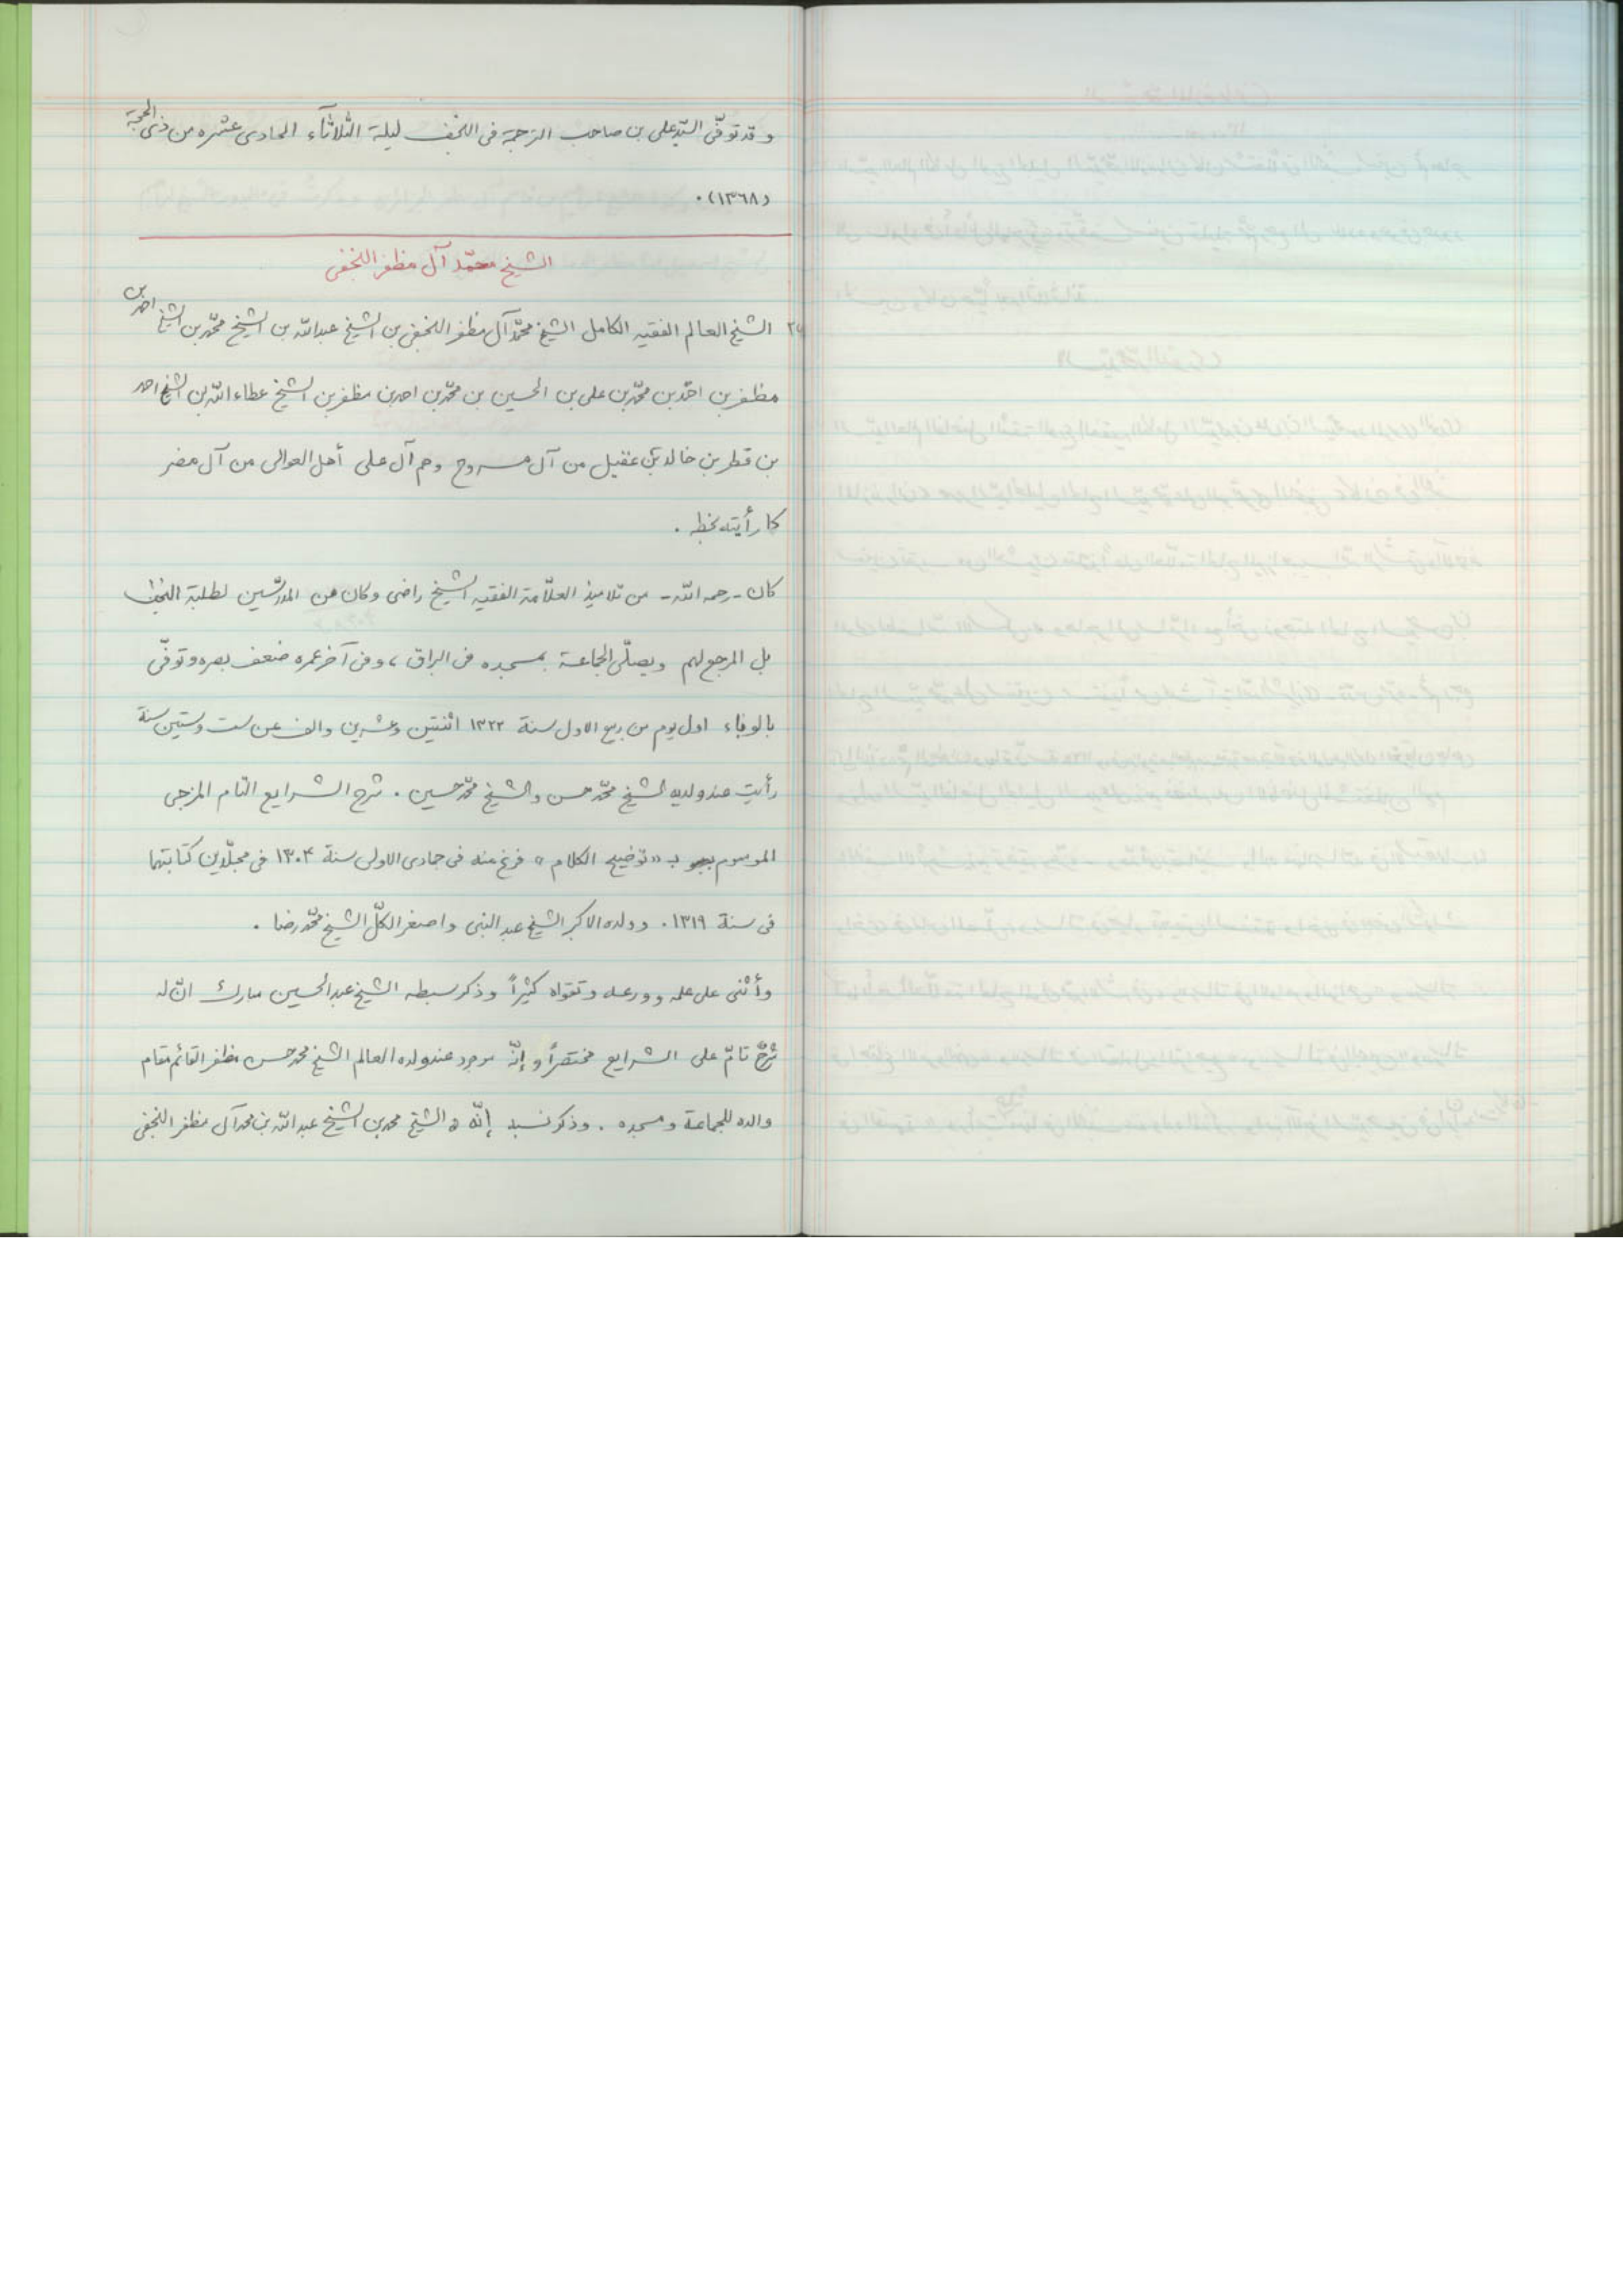 و قد توفّى السّيد على بن صاحب الترجمة فى النّجف ليلة الثّلاثآء الحادى عشره من ذى الحجة
(١٣٦٨) .
الشيخ محمّد آل مظفر النجفى
الشيخ العالم الفقيه الكامل الشيخ محمّد آل مظفر النجفى بن الشيخ عبدالله بن الشيخ محمّد بن الشيخ احمد بن
مظفر بن احمد بن محمّد بن على بن الحسين بن محمّد بن احمد بن مظفر بن الشيخ عطاء الله بن الشيخ احمد
بن قطر بن خالد بن عقيل من آل مسروح وهم آل على أهل العوالى من آل مضر
كما رأيته بخطه .
كان - رحمه الله - من تلاميذ العلّامة الفقيه الشيخ راضى وكان من المدرّسين لطلبة النجف
بل المرجع لهم ويصلّى الجماعة بمسجده فى البراق ، وفى آخر عمره ضعف بصره وتوفّى
بالوباء اول يوم من ربيع الاول سنة ١٣٢٢ اثنتين وعشرين والف عن ست وستين سنة
رأيت عند ولديه الشيخ محمّد حسن والشيخ محمّد حسين . شرح الشرايع التام المزجى
الموسوم بـ «توضيح الكلام» فرغ منه فى جمادى الاولى سنة ١٣٠٤ فى مجلّدين كتابتهما
فى سنة ١٣١٩ . وولده الاكبر الشيخ عبد النبى واصغر الكلّ الشيخ محمّد رضا .
وأثنى على علمه وورعه وتقواه كثيراً وذكر سبطه الشيخ عبد الحسين مبارك انّ له
شرحٌ تامّ على الشرايع مختصراً وإنّه موجود عند ولده العالم الشيخ محمد حسن مظفر القائم مقام
والده للجماعة ومسجده . وذكر نسبه إنّه الشيخ محمد بن الشيخ عبد الله بن محمد آل مظفر النجفى